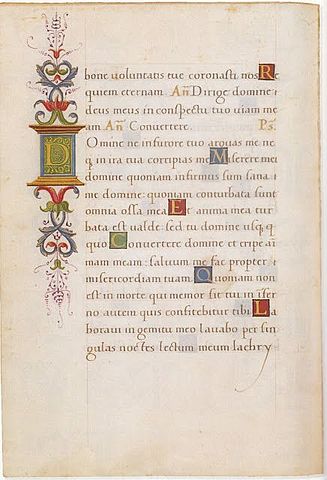 bone voluntatis tue coronasti nos Re
quiem eternam. An Dirige domine
deus meus in conspectu tuo viam me
am An Convertere. Ps.
Domine ne in furore tuo arguas me ne
q in ira tua corripias me Miserere mei
domine quoniam infirmus sum sana
me domine quoniam conturbata sunt
omnia ossa mea Et anima mea tur
bata est valde sed tu domine usq
quo Convertere domine et eripe ani
mam meam: salvum me fac propter
misericordiam tuam Quoniam non
est in morte qui memor sit tui in ifer
no autem quis confitebitur tibi La
boravi in gemitu meo lavabo per sin
gulas noctes lectum meum lachry